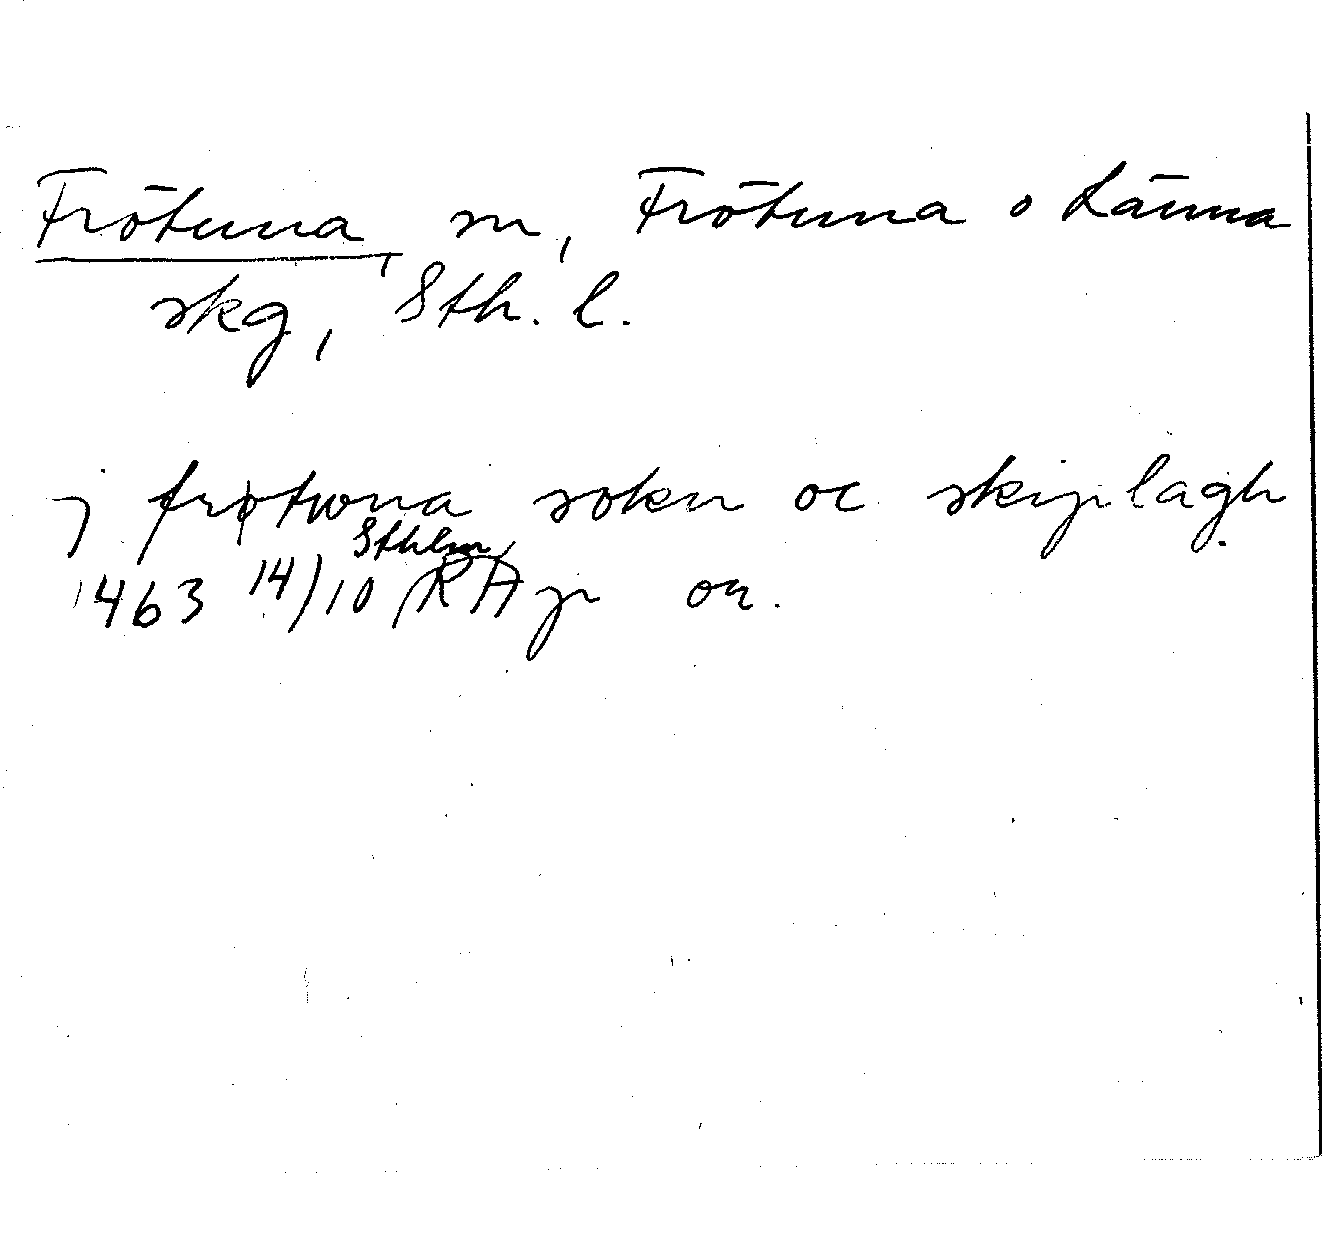 Frötuna, sn, Frötuna o Länna
skg, Sth. l.
j frøtwna sokn oc skiplagh
Sthlm
1463 14/10 RAp or.